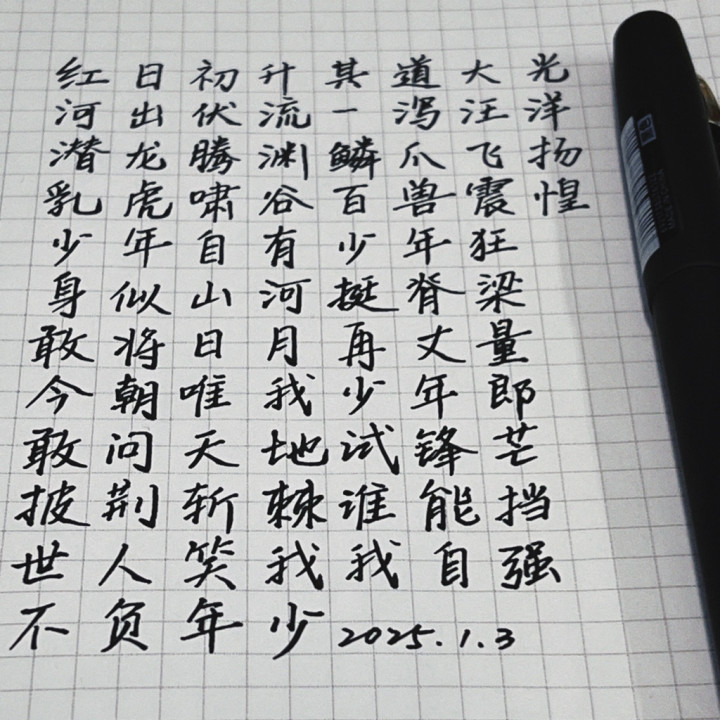 红日初升其道大光
河出伏流一泻汪洋
潜龙腾渊鳞爪飞扬
乳虎啸谷百兽震惶
少年自有少年狂
身似山河挺脊梁
敢将日月再丈量
今朝唯我少年郎
敢问天地试锋芒
披荆斩棘谁能挡
世人笑我我自强
不负年少2025.1.3